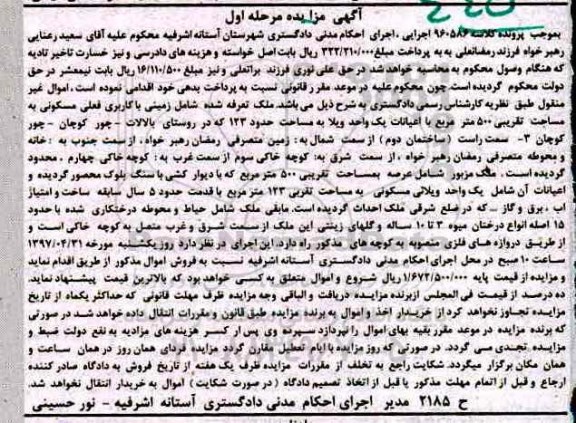 آگهی مزایده مرحله اول
بموجب پرونده کلاسه ۹۶۰۵۸۶ اجرایی ، اجرای احکام مدنی دادگستری شهرستان آستانه اشرفیه محکوم علیه آقای سعید رعنایی
رهبر خواه فرزند رمضانعلی به به پرداخت مبلغ ۳۲۲/۲۱۰/۰۰۰ ریال بابت اصل خواسته و هزینه های دادرسی و نیز خسارت تاخیر تادیه
که هنگام وصول محکوم به محاسبه خواهد شد در حق علی نوری فرزند براتعلی و نیز مبلغ ۱۶/۱۱۰/۵۰۰ ریال بابت نیمعشر در حق
دولت محکوم گردیده است.چون محکوم علیه در موعد مقرر قانونی نسبت به پرداخت بدهی خود اقدامی نموده است ، اموال غیر
منقول طبق نظریه کارشناس رسمی دادگستری به شرح ذیل می باشد. ملک تعرفه شده شامل زمینی با کاربری فعلی مسکونی به
مساحت تقریبی ۵۰۰ متر مربع با اعیانات یک واحد ویلا به مساحت حدود ۱۲۳ که در روستای بالالات - چور کوچان - چور
کوچان ۳- سمت راست (ساختمان دوم ) از سمت شمال به : زمین متصرفی رمضان رهبر خواه ، از سمت جنوب به : خانه
و محوطه متصرفی رمضان رهبر خواه ، از سمت شرق به: کوچه خاکی سوم از سمت غرب به : کوچه خاکی چهارم . محدود
گردیده است . ملک مزبور شامل عرصه بمساحت تقریبی ۵۰۰ متر مربع که با دیوار کشی با سنگ بلوک محصور گردیده و
اعیانات آن شامل یک واحد ویلائی مسکونی به مساحت تقربی ۱۲۳ متر مربع با قدمت حدود ۵ سال سابقه ساخت و امتیاز
اب ، برق و گاز – که در ضلع شرقی ملک احداث گردیده است. مابقی ملک شامل حیاط و محوطه درختکاری شده با حدود
۱۵ اصله انواع درختان میوه ۳ تا ۱۰ ساله و گلهای زینتی این ملک از سمت شرق و غرب متصل به کوچه خاکی است و
از طریق دروازه های فلزی منصوبه به کوچه های مذکور راه دارد. این اجرای در نظر دارد روز یکشنبه مورخه ۱۳۹۷/۰۴/۳۱
ساعت ۱۰ صبح در محل اجرای احکام مدنی دادگستری آستانه اشرفیه نسبت به فروش اموال مذکور از طریق اقدام نماید
و مزایده از قیمت پایه ۱/۶۷۲/۵۰۰/۰۰۰ریال شروع و اموال متعلق به کسی خواهد بود که بالاترین قیمت پیشنهاد نماید.
ده درصد از قیمت فی المجلس ازبرنده مزایده دریافت و الباقی وجه مزایده ظرف مهلت قانونی که حداکثر یکماه از تاریخ
مزایده تجاوز نخواهد کرد از خریدار اخذ و اموال به برنده مزایده طبق قانون و مقررات انتقال داده خواهد شد.در صورتی
که برنده مزایده در موعد مقرر بقیه بهای اموال را نپردازد سپرده وی پس از کسر هزینه های مزایده به نفع دولت ضبط و
مزایده تجدی می گردد. در صورتی که روز مزایده با ایام تعطیل مقارن گردد مزایده فردای همان روز در همان ساعت و
همان مکان برگزار میگردد. شکایت راجع به تخلف از مقررات مزایده ظرف یک هفته از تاریخ فروش به دادگاه صادر کننده
ارجاع و قبل از اتمام مهلت مذکور یا قبل از اتخاذ تصمیم دادگاه (در صورت شکایت ) اموال به خریدار انتقال نخواهد شد.
ح ۲۱۸۵ مدیر اجرای احکام مدنی دادگستری آستانه اشرفیه - نور حسینی